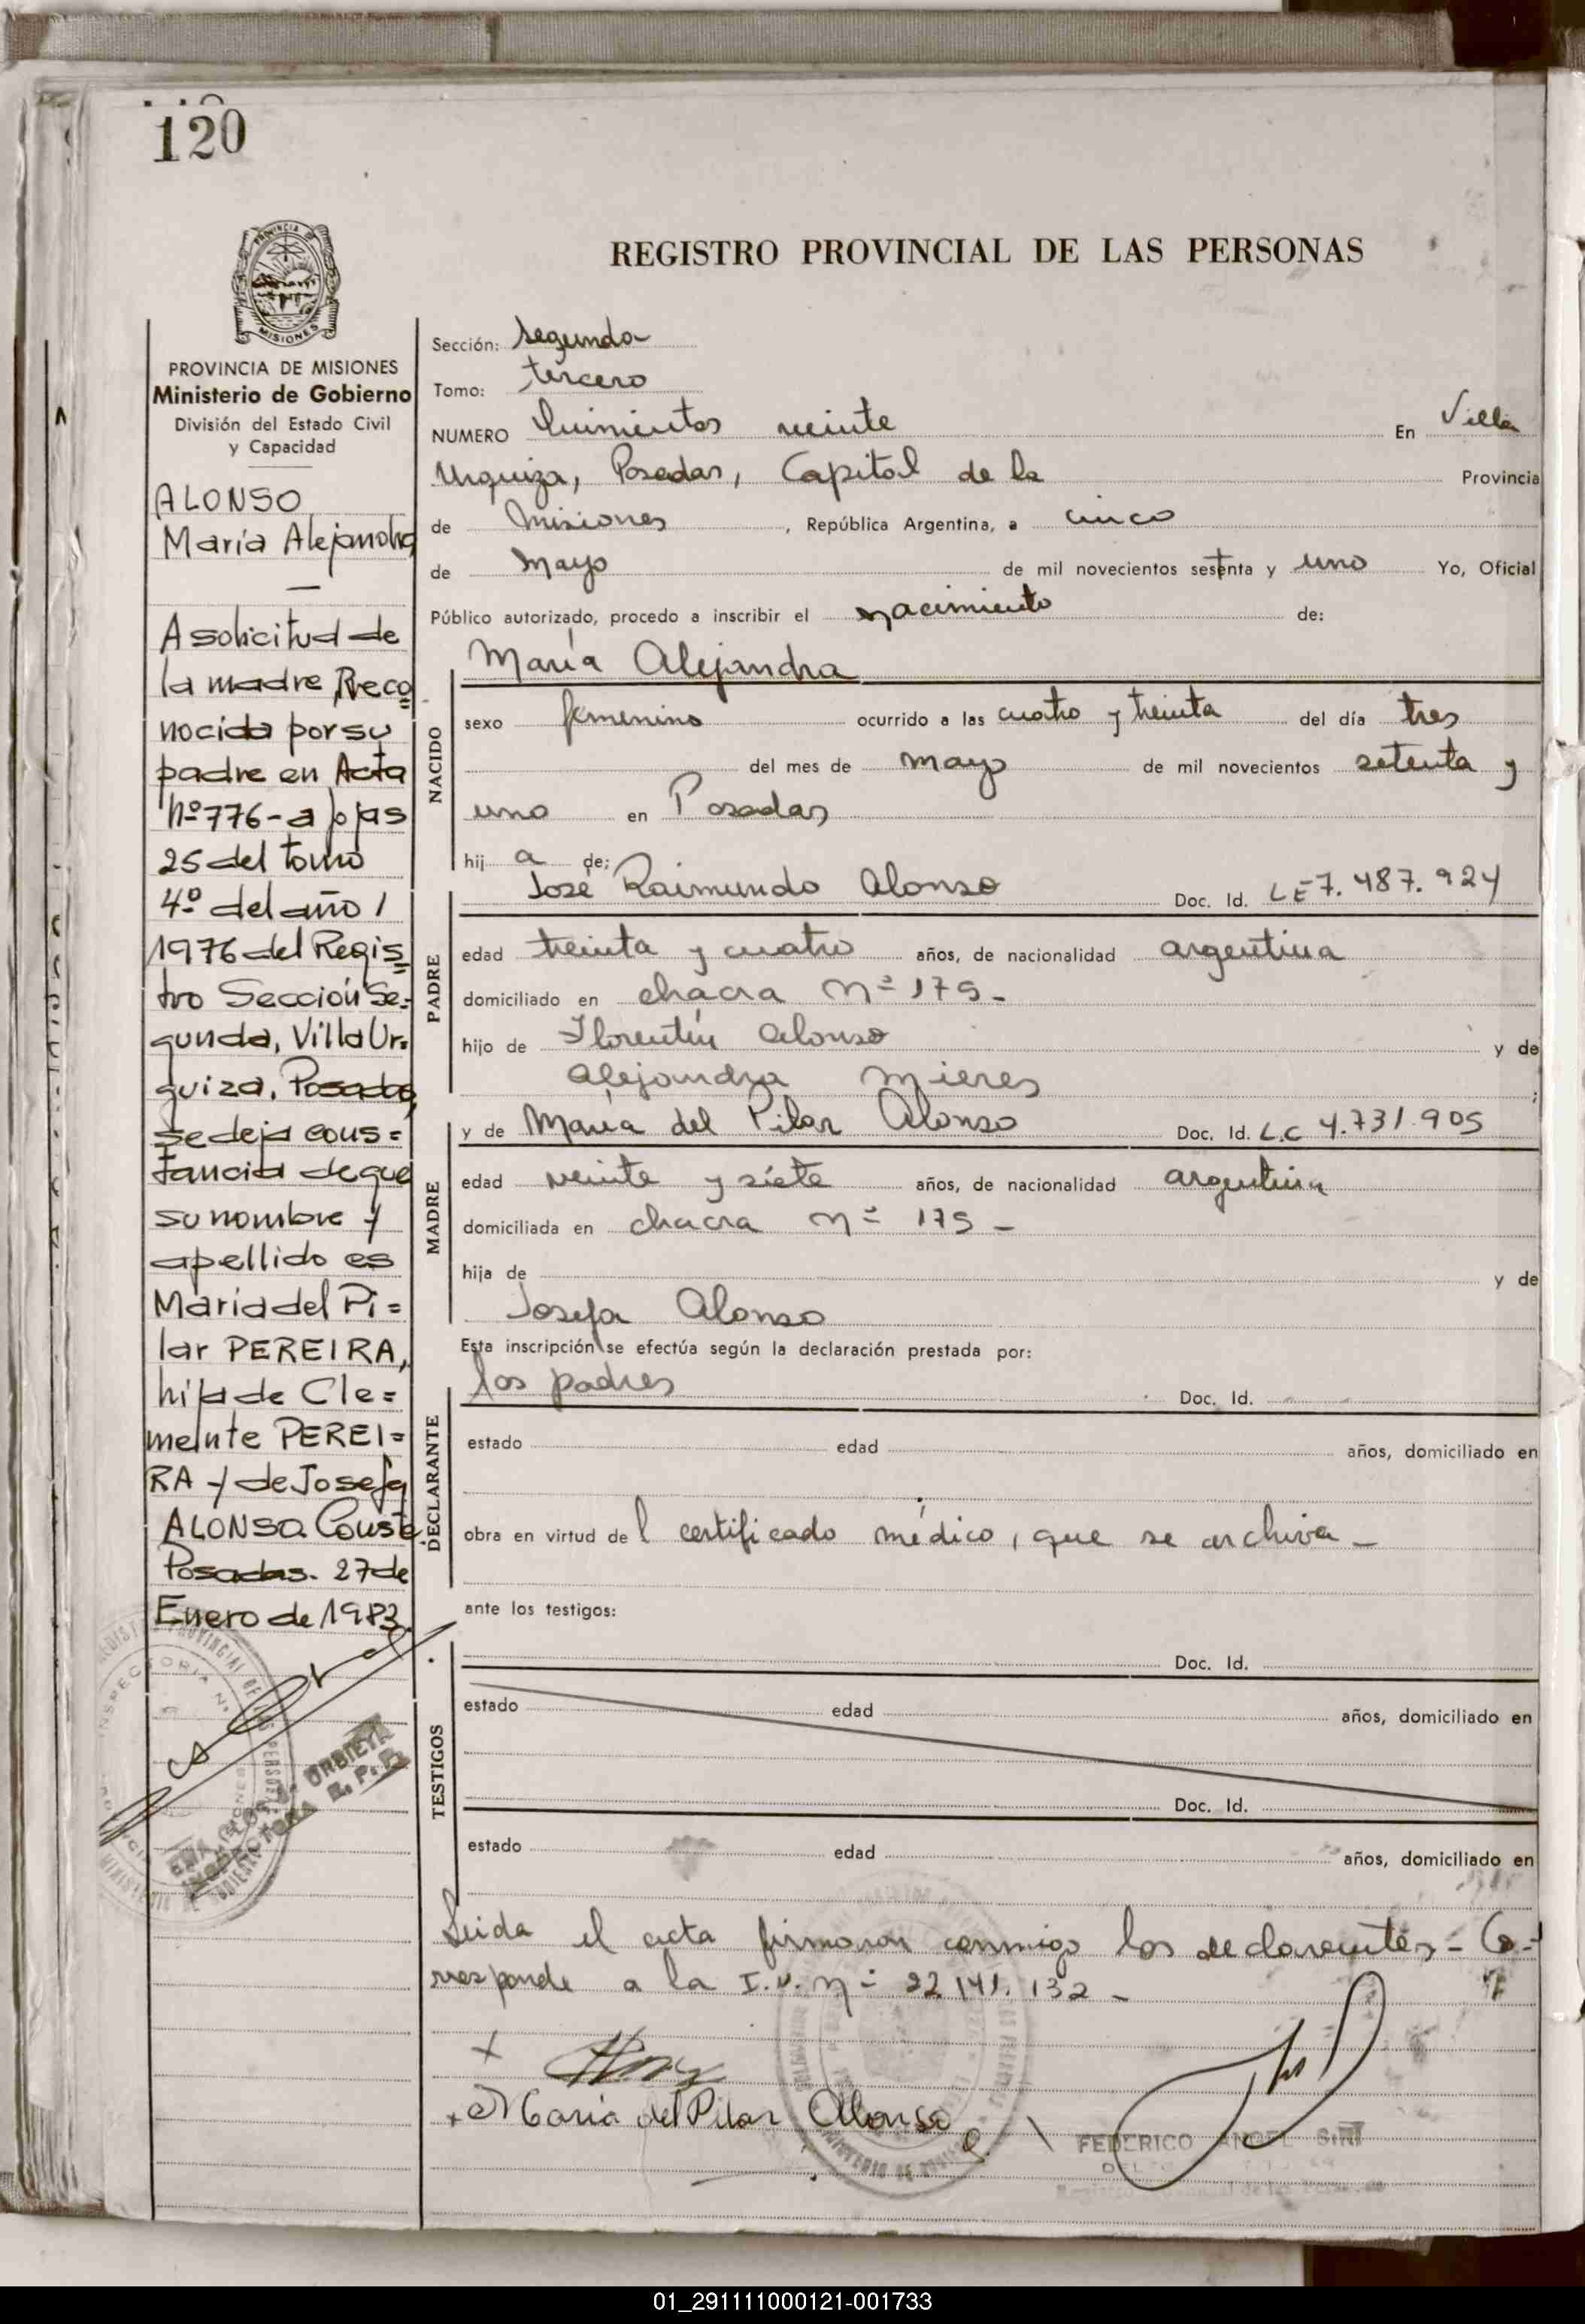 120
PROVINCIA DE MISIONES
MISIONES
PROVINCIA DE MISIONES
Ministerio de Gobierno
División del Estado Civil
y Capacidad
ALONSO
María Alejandra
—
A solicitud de
la madre, Reco
nocida por su
padre en Acta
Nº 776 - a fojas
25 del tomo
4º del año /
1976 del Regis
tro Sección Se-
gunda, Villa Ur-
quiza, Posadas,
se deja cons=
tancia de que
su nombre y
apellido es
María del Pi=
lar PEREIRA,
hija de Cle=
mente PEREI=
RA y de Josefa
ALONSO. Conste
Posadas. 27 de
Enero de 1983.
REGISTRO PROVINCIAL DE LAS PERSONAS
Sección: segunda
Tomo: tercero
NUMERO Quinientos veinte En Villa
Urquiza, Posadas, Capital de la Provincia
de Misiones, República Argentina, a cinco
de Mayo de mil novecientos setenta y uno Yo, Oficial
Público autorizado, procedo a inscribir el nacimiento de:
María Alejandra
NACIDO
sexo femenino ocurrido a las cuatro y treinta del día tres
del mes de mayo de mil novecientos setenta y
uno en Posadas
hij a de:
José Raimundo Alonso Doc. Id. LE 7.487.924
PADRE
edad treinta y cuatro años, de nacionalidad argentina
domiciliado en chacra nº 175-
hijo de Florentín Alonso y de
Alejandra Mieres ;
y de María del Pilar Alonso Doc. Id. L.C 4.731.905
MADRE
edad veinte y siete años, de nacionalidad argentina
domiciliada en chacra nº 175 -
hija de y de
Josefa Alonso
Esta inscripción se efectúa según la declaración prestada por:
los padres Doc. Id.
DECLARANTE
estado edad años, domiciliado en
obra en virtud del certificado médico, que se archiva -
ante los testigos:
Doc. Id.
TESTIGOS
estado edad años, domiciliado en
Doc. Id.
estado edad años, domiciliado en
Leida el acta firmaron conmigo los declarantes - Co-
rresponde a la I.U. nº 22.141.132 -
María del Pilar Alonso
FEDERICO ANGEL
INSPECTORA R.P.P.
01_291111000121-001733